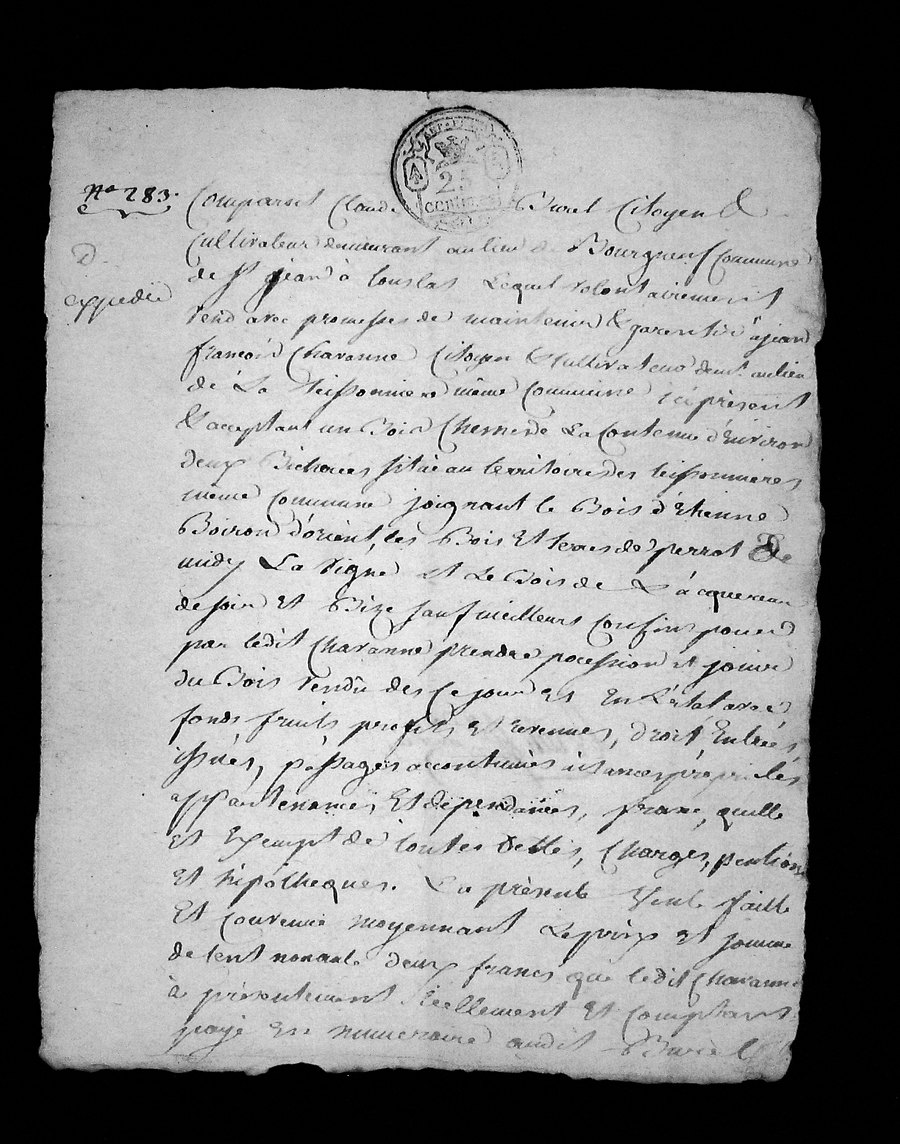 25
N° 283.
expediée
Comparut Claude Burel Citoyen &
Cultivateur demeurant au lieu de Bourgneuf Commune
de St jean à touslas Lequel volontairement
vend avec promesses de maintenir & garentir à jean
françois Chavanne Citoyen & Cultivateur demt au lieu
de La teissonniere même Commune ici présent
& acceptant un Bois Chesne de La Contenue d'Environ
deux Bicherées situé au territoire des teissonnieres
même Commune joignant le Bois d'Etienne
Boiron d'orient, les Bois Et terres de perrot de
midy La vigne et Le Bois de L'acquereur
de soir Et Bize sauf meilleurs Confins pour
par ledit Chavanne prendre pocession et jouir
du Bois vendu des Ce jour Et En L'état avec
fonds fruits, profits Et revenues, droit Entrées
issues, passages accoutumés
appantenances, Et dépendances, franc, quitte
et Exempt de toutes dettes, Charges, pentions
Et hipotheques. La présente vente faitte
Et convenue moyennant Le prix et somme
de Cent nonante deux francs que ledit Chavanne
à présentement Réellement Et comptant
payé En numeraire audit Burel